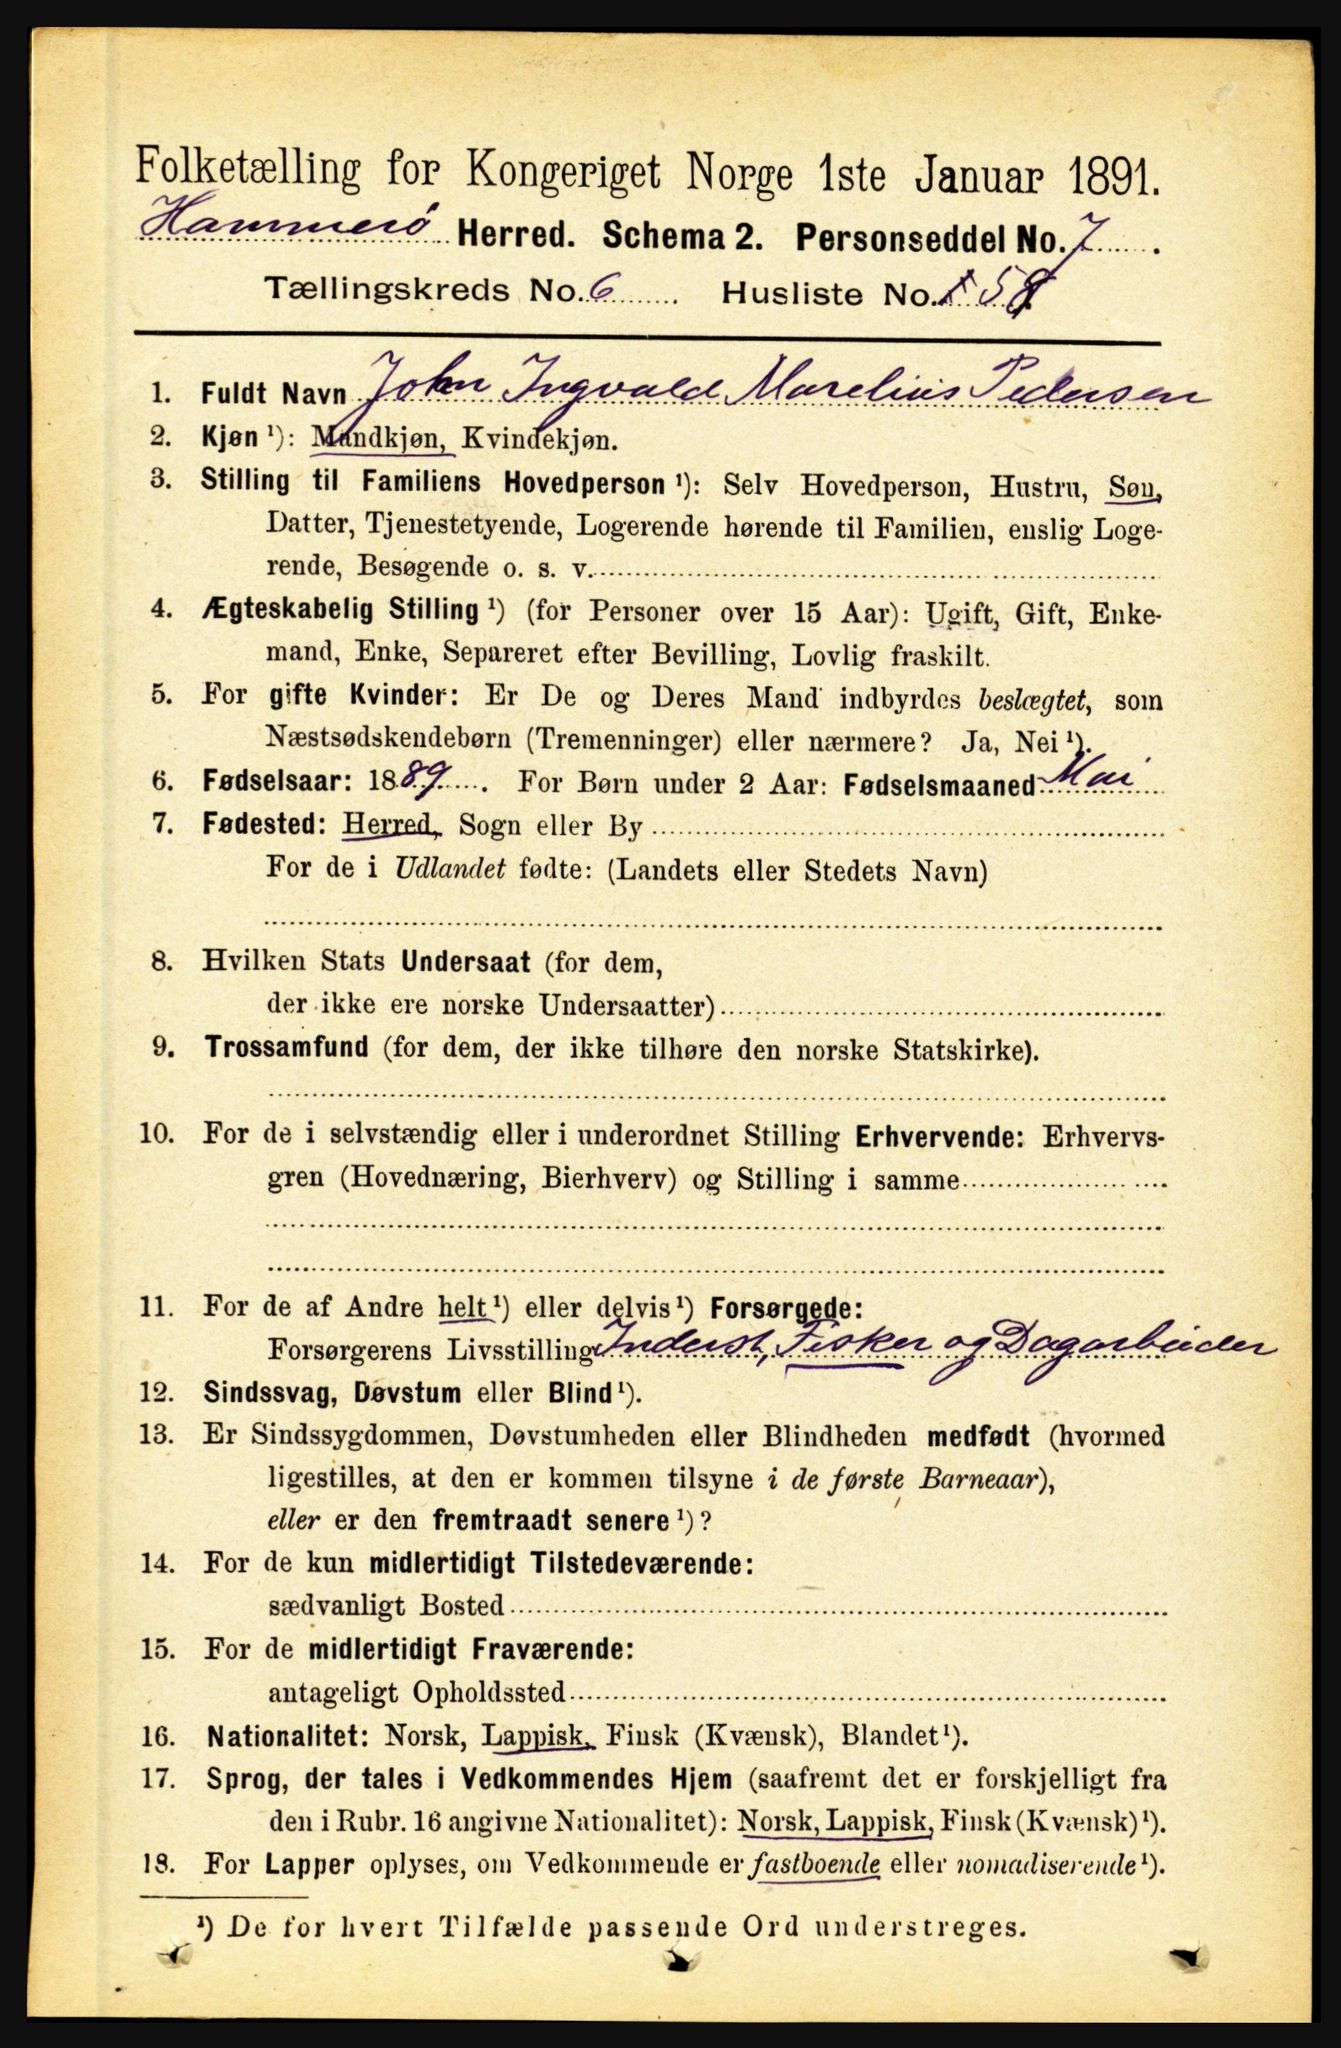 Folketælling for Kongeriget Norge 1ste Januar 1891.
Hammerø Herred. Schema 2. Personseddel No. 7
Tællingskreds No. 6 Husliste No. 58
1. Fuldt Navn John Ingvald Marelius Pedersen
2. Kjøn ¹): Mandkjøn, Kvindekjøn.
3. Stilling til Familiens Hovedperson ¹): Selv Hovedperson, Hustru, Søn,
Datter, Tjenestetyende, Logerende hørende til Familien, enslig Loge-
rende, Besøgende o. s. v.
4. Ægteskabelig Stilling ¹) (for Personer over 15 Aar): Ugift, Gift, Enke-
mand, Enke, Separeret efter Bevilling, Lovlig fraskilt.
5. For gifte Kvinder: Er De og Deres Mand indbyrdes beslægtet, som
Næstsødskendebørn (Tremenninger) eller nærmere? Ja, Nei ¹).
6. Fødselsaar: 1889. For Børn under 2 Aar: Fødselsmaaned Mai
7. Fødested: Herred, Sogn eller By
For de i Udlandet fødte: (Landets eller Stedets Navn)
8. Hvilken Stats Undersaat (for dem,
der ikke ere norske Undersaatter)
9. Trossamfund (for dem, der ikke tilhøre den norske Statskirke).
10. For de i selvstændig eller i underordnet Stilling Erhvervende: Erhvervs-
gren (Hovednæring, Bierhverv) og Stilling i samme
11. For de af Andre helt ¹) eller delvis ¹) Forsørgede:
Forsørgerens Livsstilling Inderst, Fisker og Dagarbeider
12. Sindssvag, Døvstum eller Blind ¹).
13. Er Sindssygdommen, Døvstumheden eller Blindheden medfødt (hvormed
ligestilles, at den er kommen tilsyne i de første Barneaar),
eller er den fremtraadt senere ¹)?
14. For de kun midlertidigt Tilstedeværende:
sædvanligt Bosted
15. For de midlertidigt Fraværende:
antageligt Opholdssted
16. Nationalitet: Norsk, Lappisk, Finsk (Kvænsk), Blandet ¹).
17. Sprog, der tales i Vedkommendes Hjem (saafremt det er forskjelligt fra
den i Rubr. 16 angivne Nationalitet): Norsk, Lappisk, Finsk (Kvænsk) ¹).
18. For Lapper oplyses, om Vedkommende er fastboende eller nomadiserende ¹).
¹) De for hvert Tilfælde passende Ord understreges.